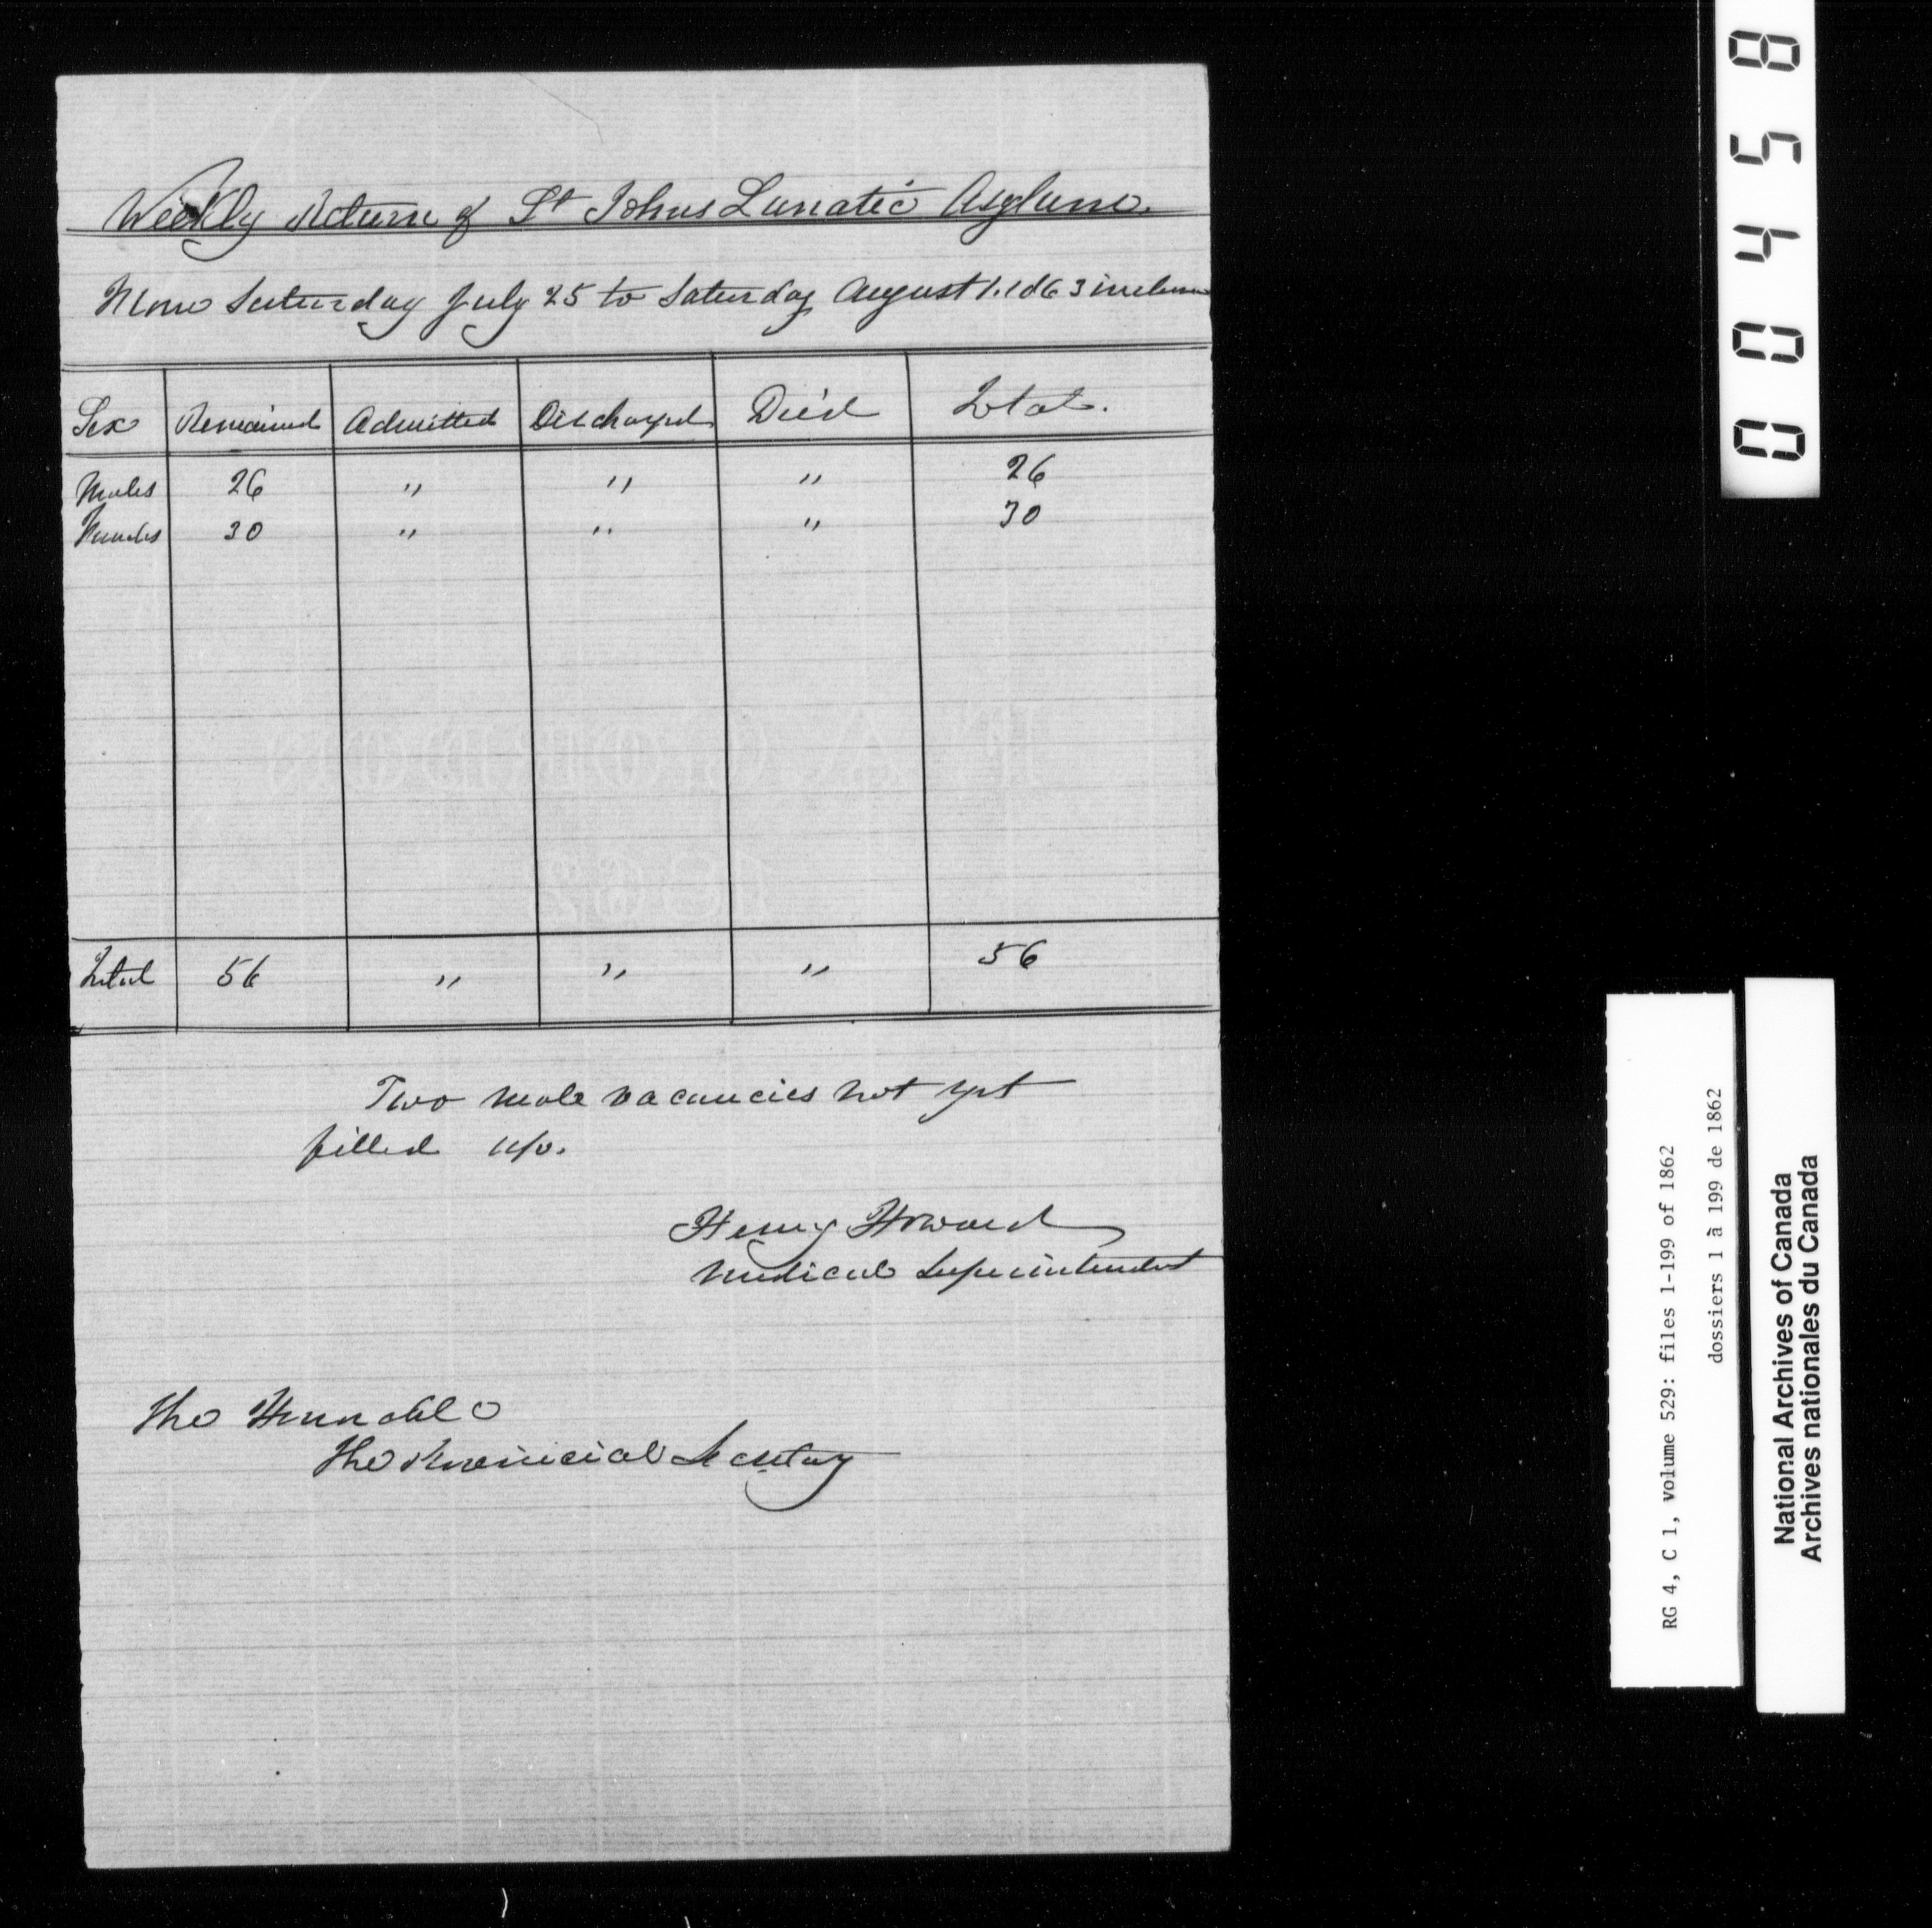 Weekly Return of St Johns Lunatic Asylum.
From Saturday July 25 to Saturday August 1. 1863 inclusive
Sex Remained Admitted Discharged Died Total.
Males 26 " " " 26
Females 30 " " " 30
Total 56 " " " 56
Two male vacancies not yet
filled up.
Henry Howard
Medical Superintendent
The Honorable
The Provincial Secretary
00458
RG 4, C 1, volume 529: files 1-199 of 1862
dossiers 1 à 199 de 1862
National Archives of Canada
Archives nationales du Canada